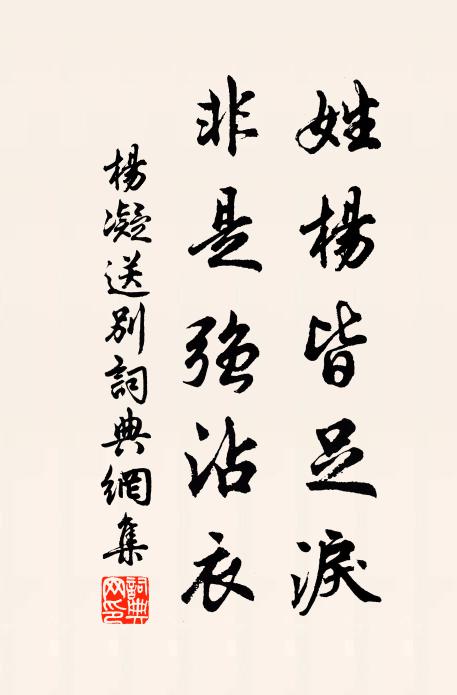 姓楊皆足淚
非是強沾衣
楊凝送別詞典網集
詞典網印